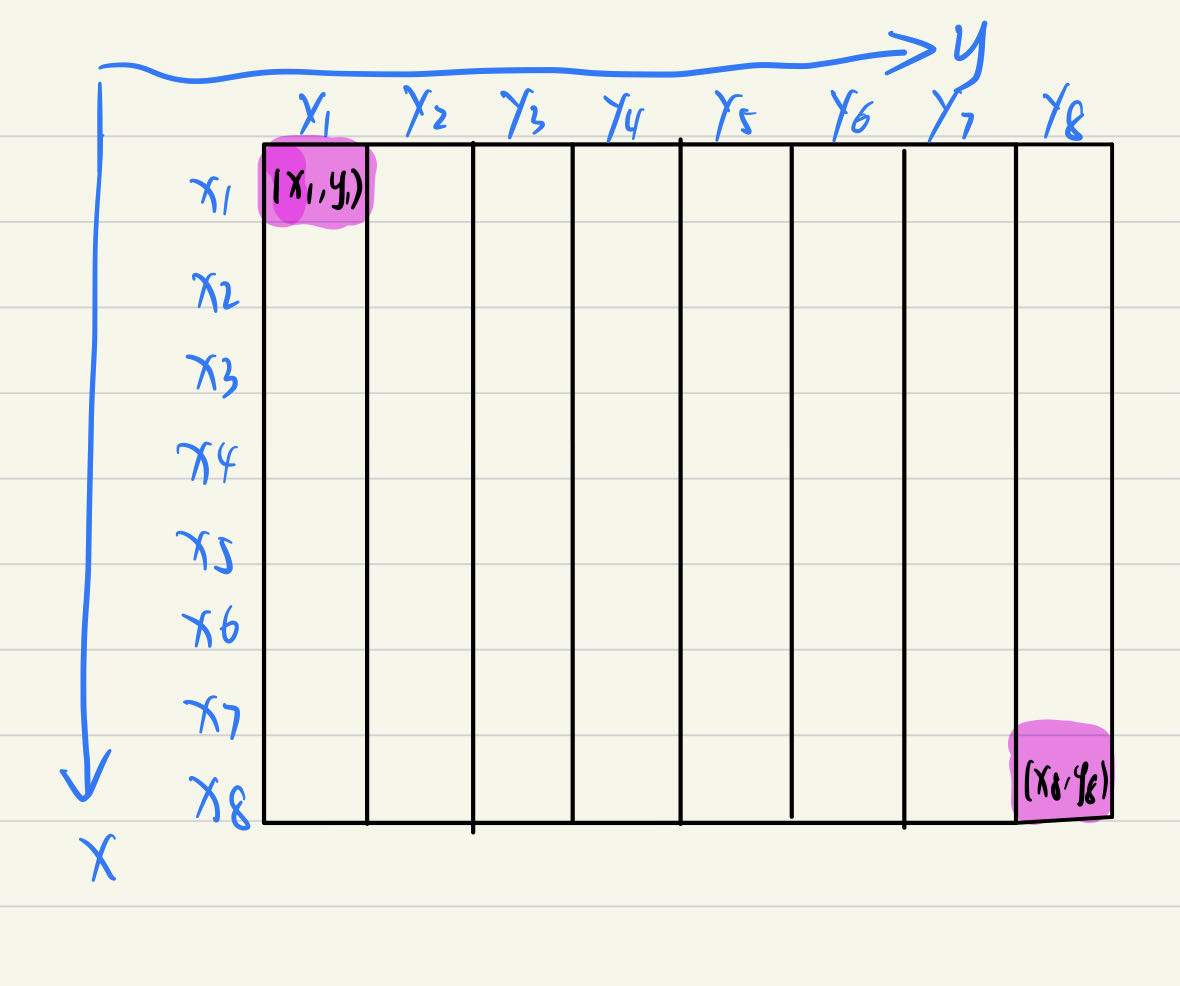 y
Y1 Y2 Y3 Y4 Y5 Y6 Y7 Y8
x1 (x1, y1)
x2
x3
x4
x5
x6
x7
x8 (x8, y8)
x